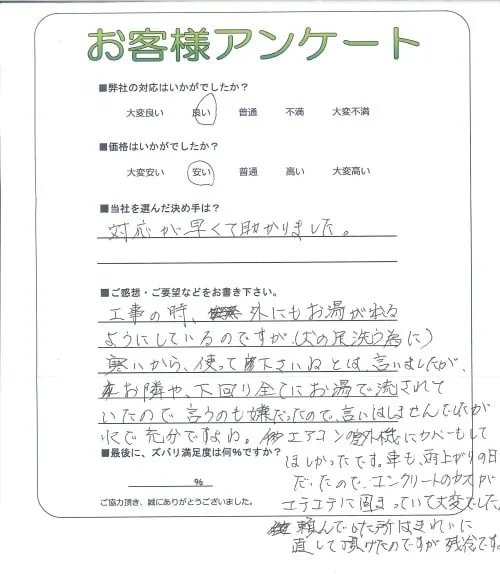 お客様アンケート
■弊社の対応はいかがでしたか？
大変良い 良い 普通 不満 大変不満
■価格はいかがでしたか？
大変安い 安い 普通 高い 大変高い
■当社を選んだ決め手は？
対応が早くて助かりました。
■ご感想・ご要望などをお書き下さい。
工事の時、外にもお湯が出る
ようにしているのですが、(犬の足洗う為に)
寒いから、使って下さいねとは、言いましたが、
お隣や、下回り全てにお湯で流されて
いたので言うのも嫌だったので、言いはしませんでしたが
水で充分ですよね。エアコンの外機にカバーもして
ほしかったです。車も、雨上がりの日
だったので、コンクリートのカスが
エテエテに固まっていて大変でした。
頼んでいた所はきれいに
直して頂けたのですが残念です。
■最後に、ズバリ満足度は何%ですか？
%
ご協力頂き、誠にありがとうございました。